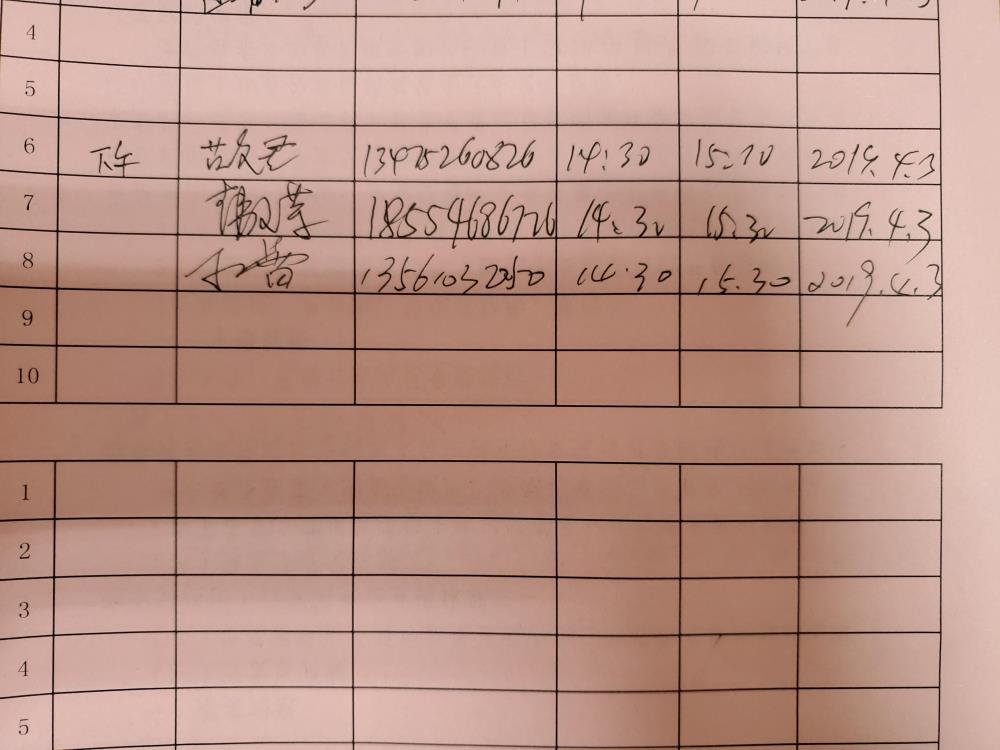 4
5
6 下午 13475260826 14:30 15:30 2019.4.3
7 18554686726 14:30 15:30 2019.4.3
8 13561032050 14:30 15:30 2019.4.3
9
10
1
2
3
4
5